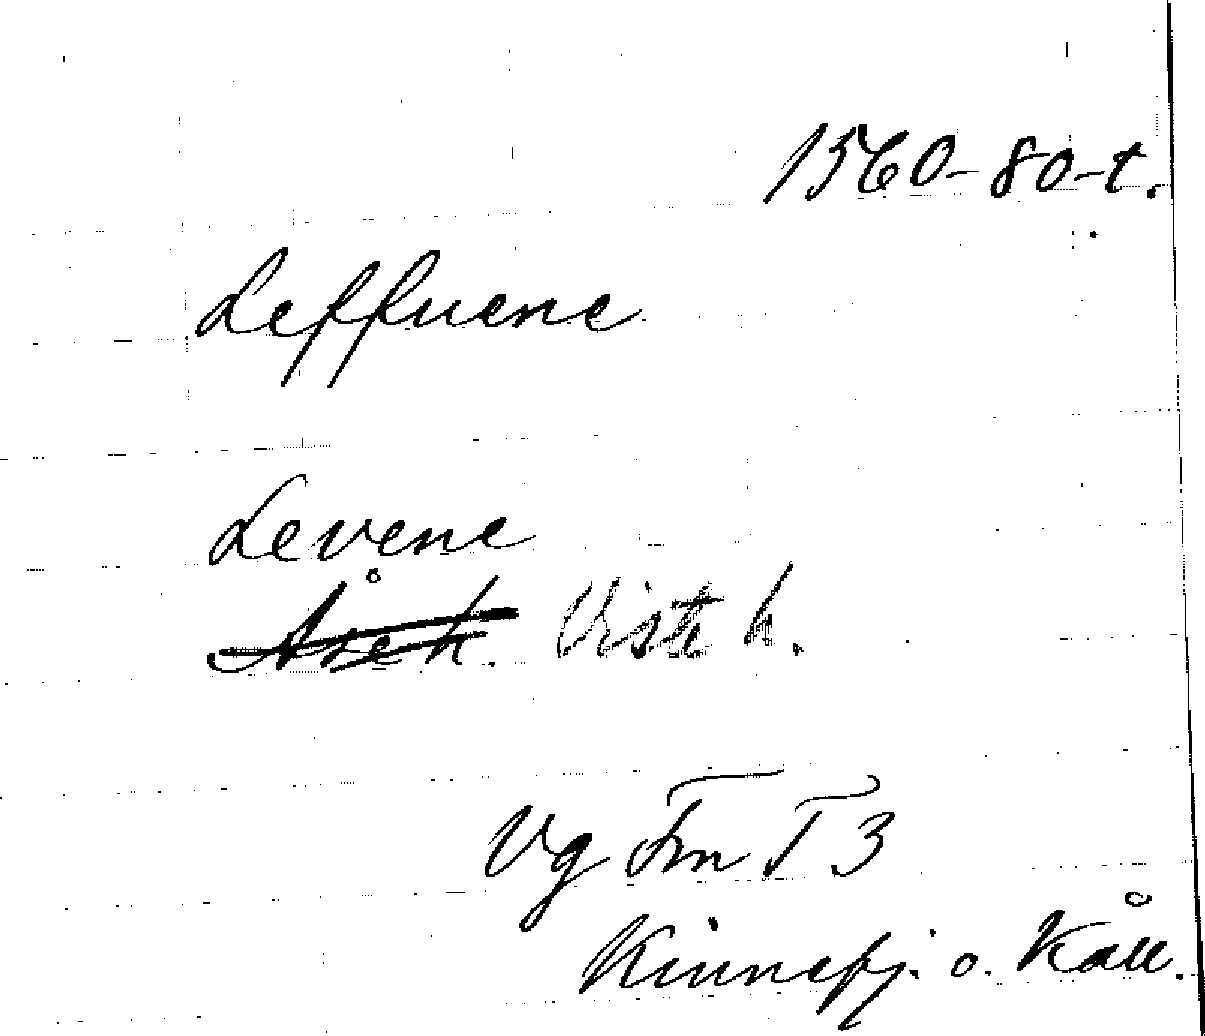 1560-80-t.
Leffuene
Levene
Åse h. Viste h.
Vg Fm T 3
Kinnefj. o. Kåll.